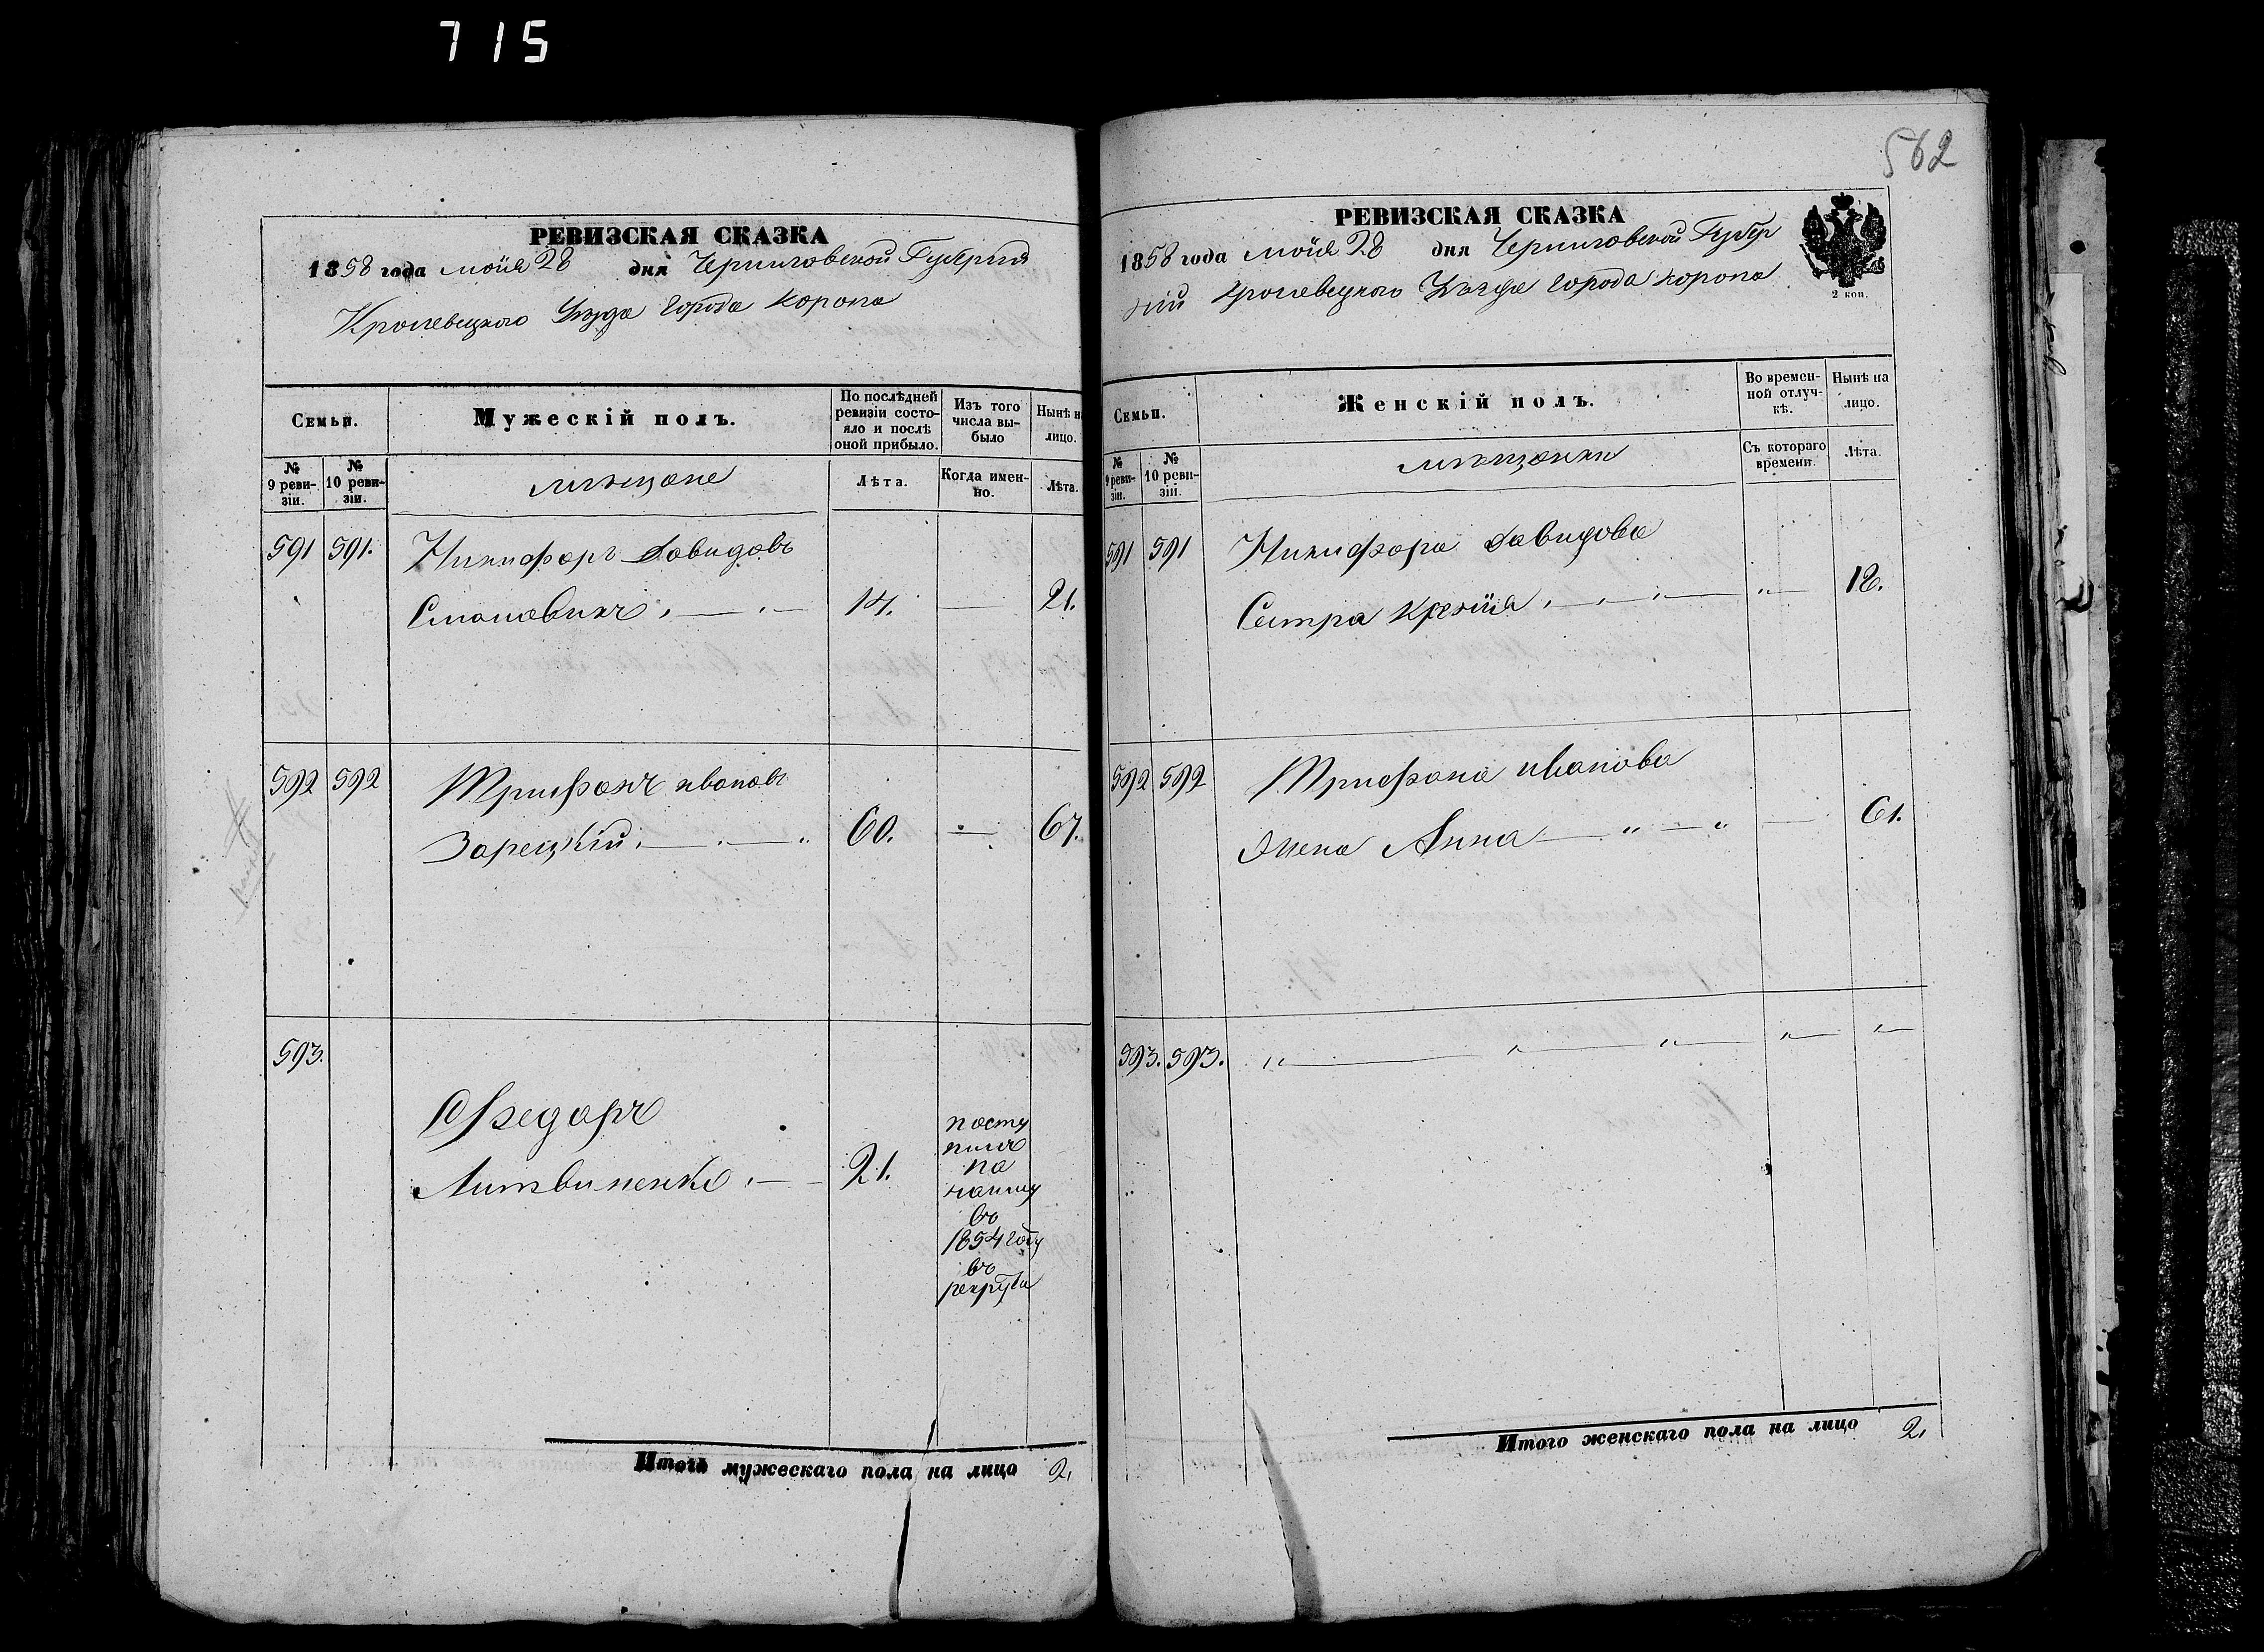 715
РЕВИЗСКАЯ СКАЗКА
1858 года мaія 28 дня Черниговской Губерніи
Кролевецкого Уѣзда города Коропа
Семьи.
Мужескій полъ.
По послѣдней ревизіи состояло и послѣ оной прибыло.
Изъ того числа выбыло
Нынѣ на лицо.
№ 9 ревизіи.
№ 10 ревизіи.
мѣщане
Лѣта.
Когда именно.
Лѣта.
591 591. Никифоръ Давидовъ
14. 21.
592 592 Трифонъ Ивановъ
Зарецкій 60. 67.
593. Ѳедоръ
Литвиненко 21.
посту
пилъ
по
найму
въ
1854 году
въ
рекруты
Итого мужескаго пола на лицо 2.
562
РЕВИЗСКАЯ СКАЗКА
1858 года маія 28 дня Черниговской Губер
ніи Кролевецкого Уѣзда города Коропа
2 коп.
Семьи.
Женскій полъ.
Во временной отлучкѣ.
Нынѣ на лицо.
№ 9 ревизіи.
№ 10 ревизіи.
мѣщанки
Съ котораго времени.
Лѣта.
591 591 Никифора Давидова
Сестра 18.
592 592 Трифона Иванова
Жена Анна 61.
593. 593.
Итого женскаго пола на лицо 2.